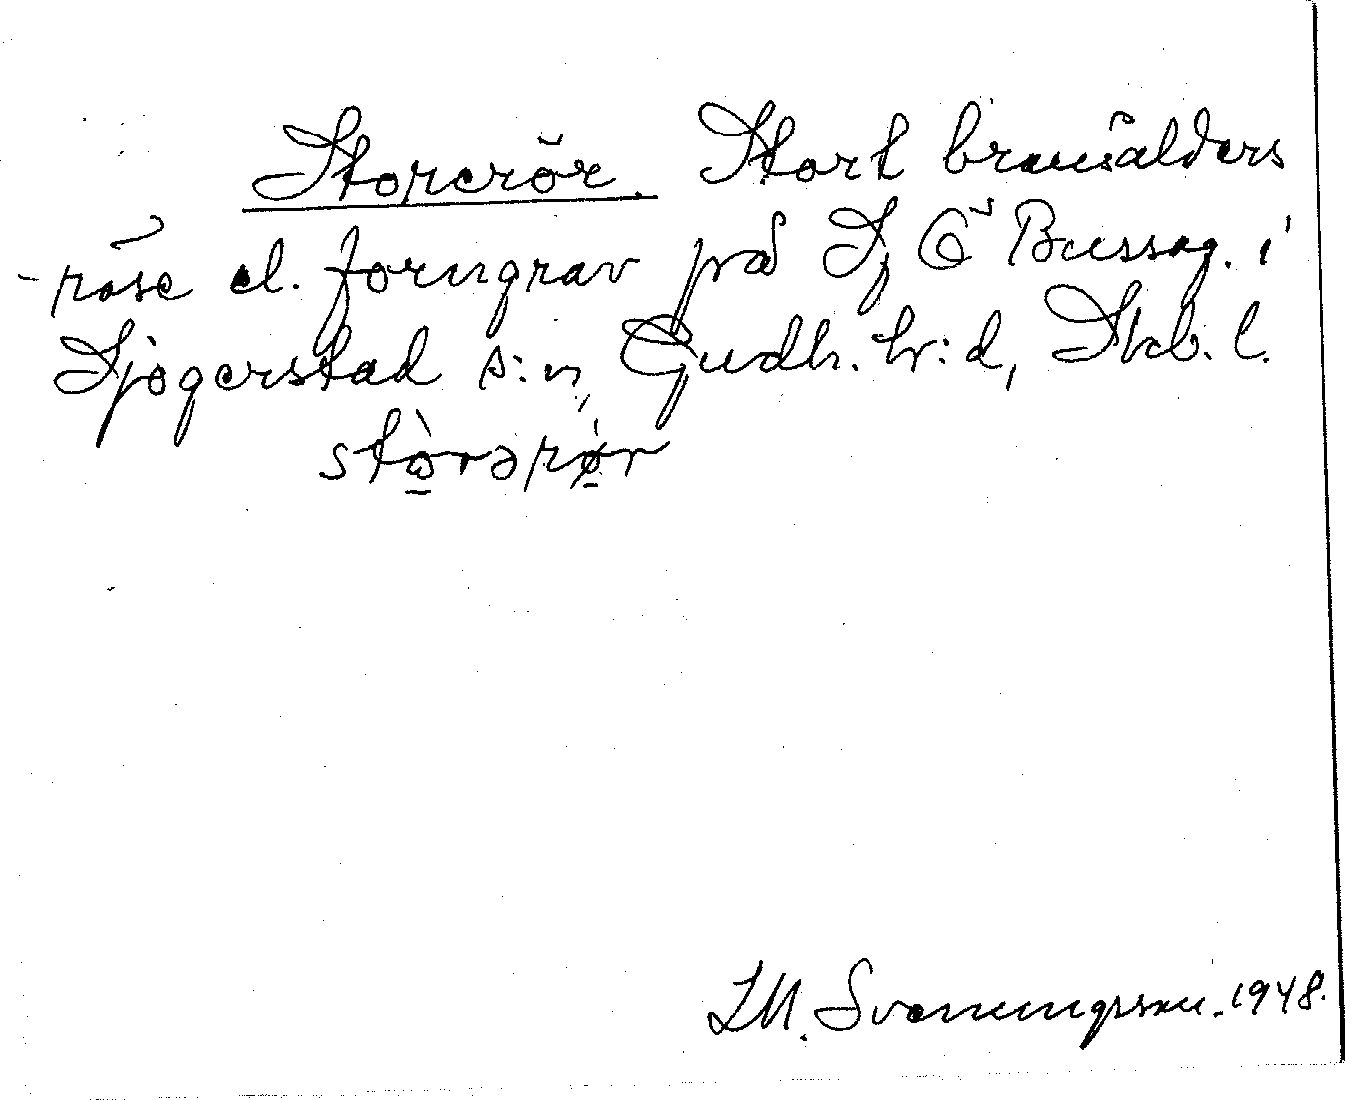 Storerör. Stort bronsålders
-röse el. forngrav på Sj Ö Bussog. i
Sjogerstad s:n, Gudh. hr:d, Skb. l.
stòrərør
I.M. Svenungsson. 1948.